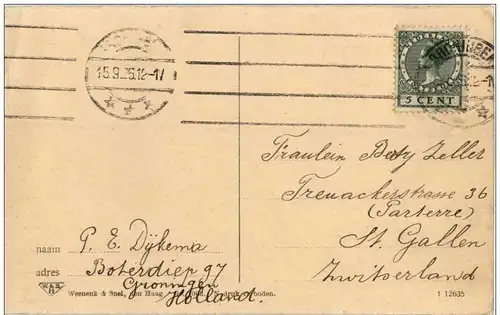 15.9. 6.12-17
5 CENT
Fraulein Bety Zeller
Treuackerstrasse 36
(Parterre)
St. Gallen
Zwitserland
naam P. E. Dÿkema
adres Boterdiep 97
Groningen
Holland.
W&S
H
Weenenk & Snel, den Haag
1 12635